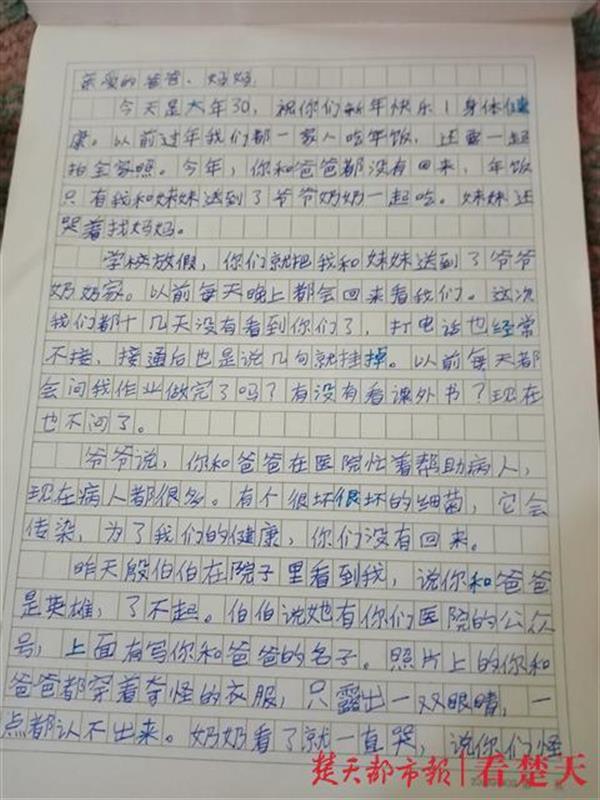 亲爱的爸爸、妈妈:
今天是大年30,祝你们新年快乐!身体健
康。以前过年我们都一家人吃年饭,还要一起
拍全家照。今年,你和爸爸都没有回来,年饭
只有我和妹妹送到了爷爷奶奶一起吃。妹妹还
哭着找妈妈。
学校放假,你们就把我和妹妹送到了爷爷
奶奶家。以前每天晚上都会回来看我们。这次
我们都十几天没有看到你们了,打电话也经常
不接,接通后也是说几句就挂掉。以前每天都
会问我作业做完了吗?有没有看课外书?现在
也不问了。
爷爷说,你和爸爸在医院忙着帮助病人,
现在病人都很多。有个很坏很坏的细菌,它会
传染,为了我们的健康,你们没有回来。
昨天殷伯伯在院子里看到我,说你和爸爸
是英雄,了不起。伯伯说她有你们医院的公众
号,上面有写你和爸爸的名子。照片上的你和
爸爸都穿着奇怪的衣服,只露出一双眼睛,一
点都认不出来。奶奶看了就一直哭,说你们怪
楚天都市报|看楚天